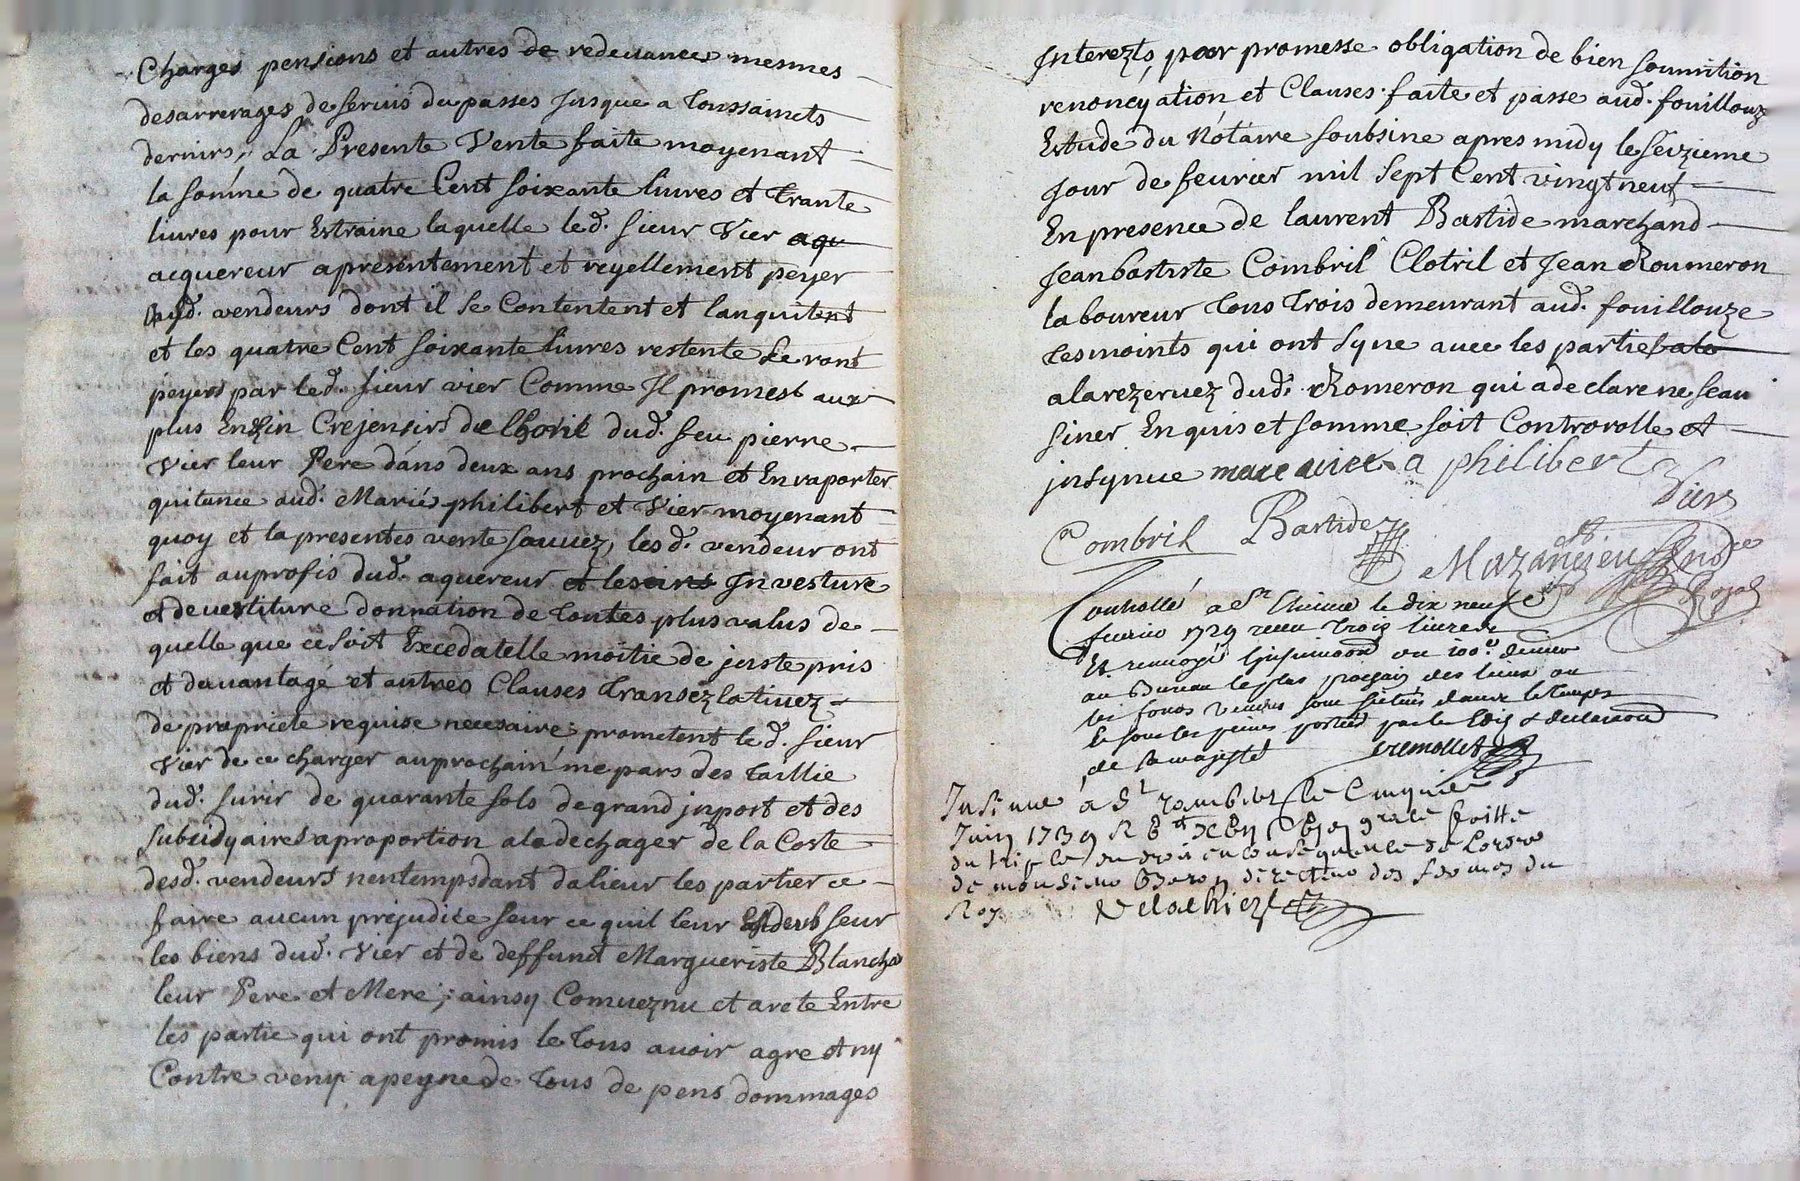 Charges pensions et autres de redeuances mesmes
desarrerages de seruis du passes Jusque a toussaincts
dernirs, La Presente Vente faite moyenant
la somme de quatre Cent soixante liures et Trante
liures pour Estraine laquelle led. sieur Vier aqu
acquereur apresentement et reyellement peyer
auxd. vendeurs dont il se Contentent et lanquitent
et les quatre Cent soixante liures restente seront
peyers par led. sieur vier Comme Il promest aux
plus Enzin Crejensirs de lhoril dud. feu pierre
Vier leur Pere dans deux ans prochain et En raporter
quitance aud. Mariés philibert et Vier moyenant
quoy et la presentes vente sauuez, les d. vendeur ont
fait auprofis dud. aquereur et lesoins Investure
et deuestiture donnation de toutes plus valus de
quelle que ce soit Excedatelle moitie de juste pris
et dauantage et autres Clauses transezlatiuez
de propriete requise necesaire; prometent le d. sieur
Vier de ce charger auprochain me pars des taillie
dud. surir de quarante sols de grand jnport et des
subsidyaires aproportion ala dechager de la Coste
desd. vendeurs nentempsdant dalieur les partier ce
faire aucun prejudice seur ce quil leur Est deub seur
les biens dud. Vier et de deffunct Margueriste Blancha
leur Pere et Mere; ainsy Comueznu et arete Entre
les partie qui ont promis le tous auoir agre et ny
Contre veny apeyne de tous de pens dommages
Interezts, poor promesse obligation de bien soumition
renoncyation et Clauses. faite et passe aud. fouillouz
Estude du Notaire soubsine apres midy le seizieme
Jour de feurier mil sept Cent vingt neuf
En presence de laurent Bastide marchand
Jean bastiste Combril Clotril et Jean Roumeron
laboureur tous trois demeurant aud. fouillouze
tesmoints qui ont syne auec les parties ale
alarezeruez dud. Romeron qui adeclare ne seau
siner Enquis et somme soit Controrolle et
jnsynue marc vier a philibert
Vier
Combril Bastide
Mazancieu No.re
Royal
Controllé a St le dix neuf
feurier 1729 receu trois liures
Et renuoyé linsinuaon du 100.e denier
au Bureau le plus prochain des lieux ou
les fonds vendus sont situés dans le temps
& sous les peines portées par les Edits & declaraons
de sa majesté
Insinué a St rambert le Cinquie
Juin 1739 R
du triple du droit en consequence de Lordre
de monsieur directeur des fermes du
Roy